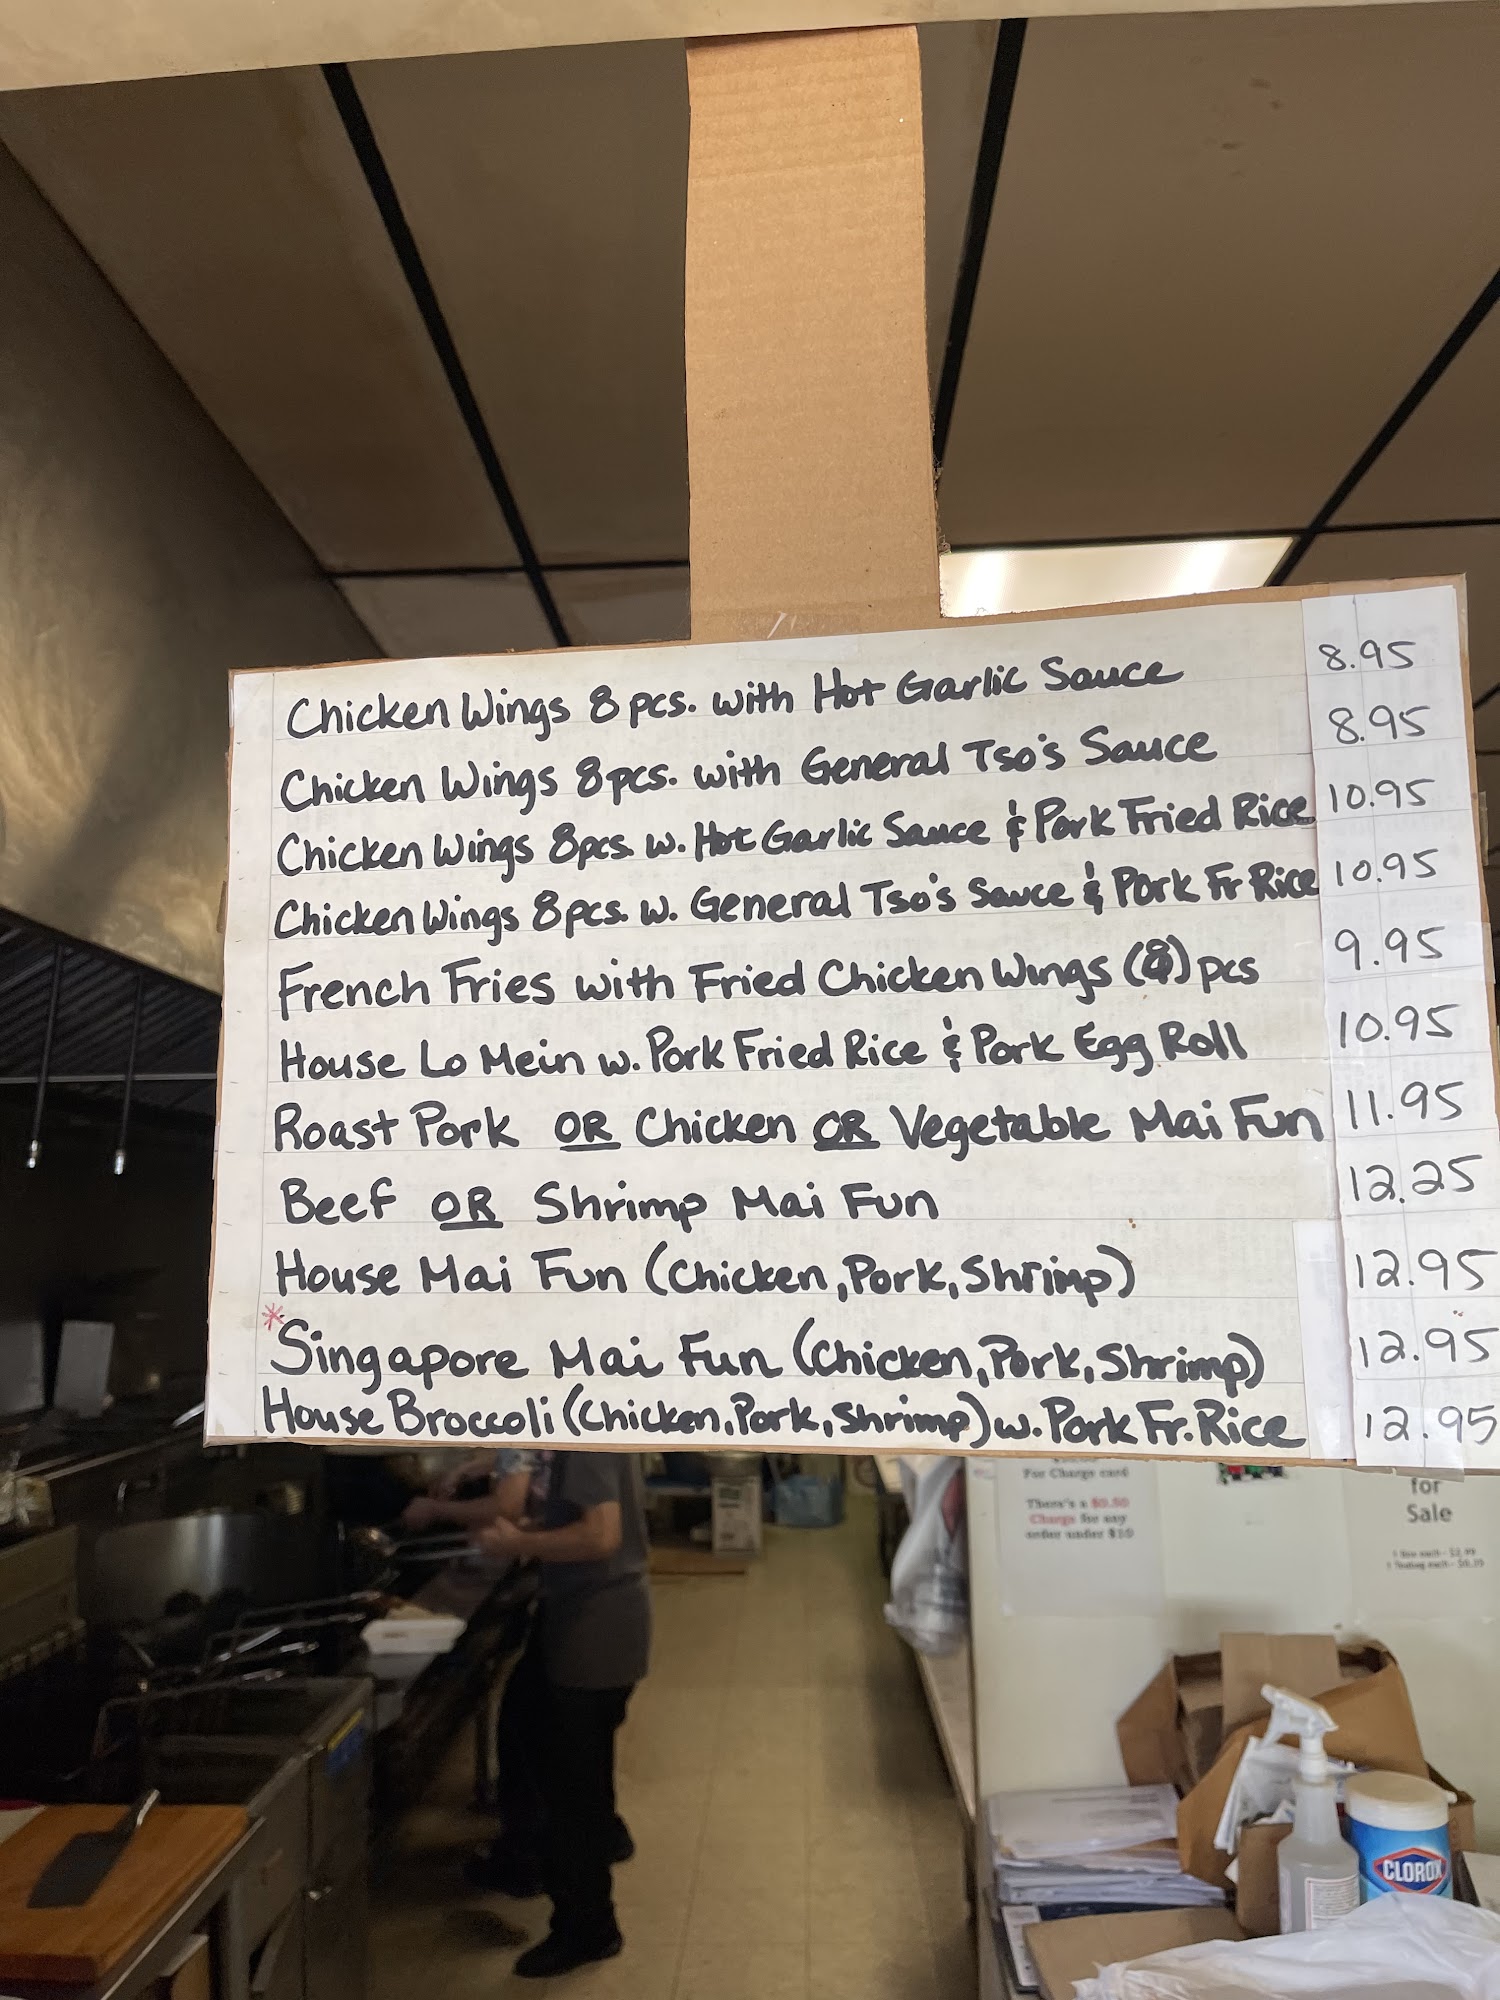 Chicken Wings 8 pcs. with Hot Garlic Sauce 8.95
Chicken Wings 8pcs. with General Tso's Sauce 8.95
Chicken Wings 8pcs. w. Hot Garlic Sauce & Pork Fried Rice 10.95
Chicken Wings 8pcs. w. General Tso's Sauce & Pork Fr Rice 10.95
French Fries with Fried Chicken Wings (8) pcs 9.95
House Lo Mein w. Pork Fried Rice & Pork Egg Roll 10.95
Roast Pork OR Chicken OR Vegetable Mai Fun 11.95
Beef OR Shrimp Mai Fun 12.25
House Mai Fun (Chicken, Pork, Shrimp) 12.95
*Singapore Mai Fun (Chicken, Pork, Shrimp) 12.95
House Broccoli (Chicken, Pork, Shrimp) w. Pork Fr. Rice 12.95
For Charge card
There's a $0.50
Charge for any
order under $10
for
Sale
CLOROX